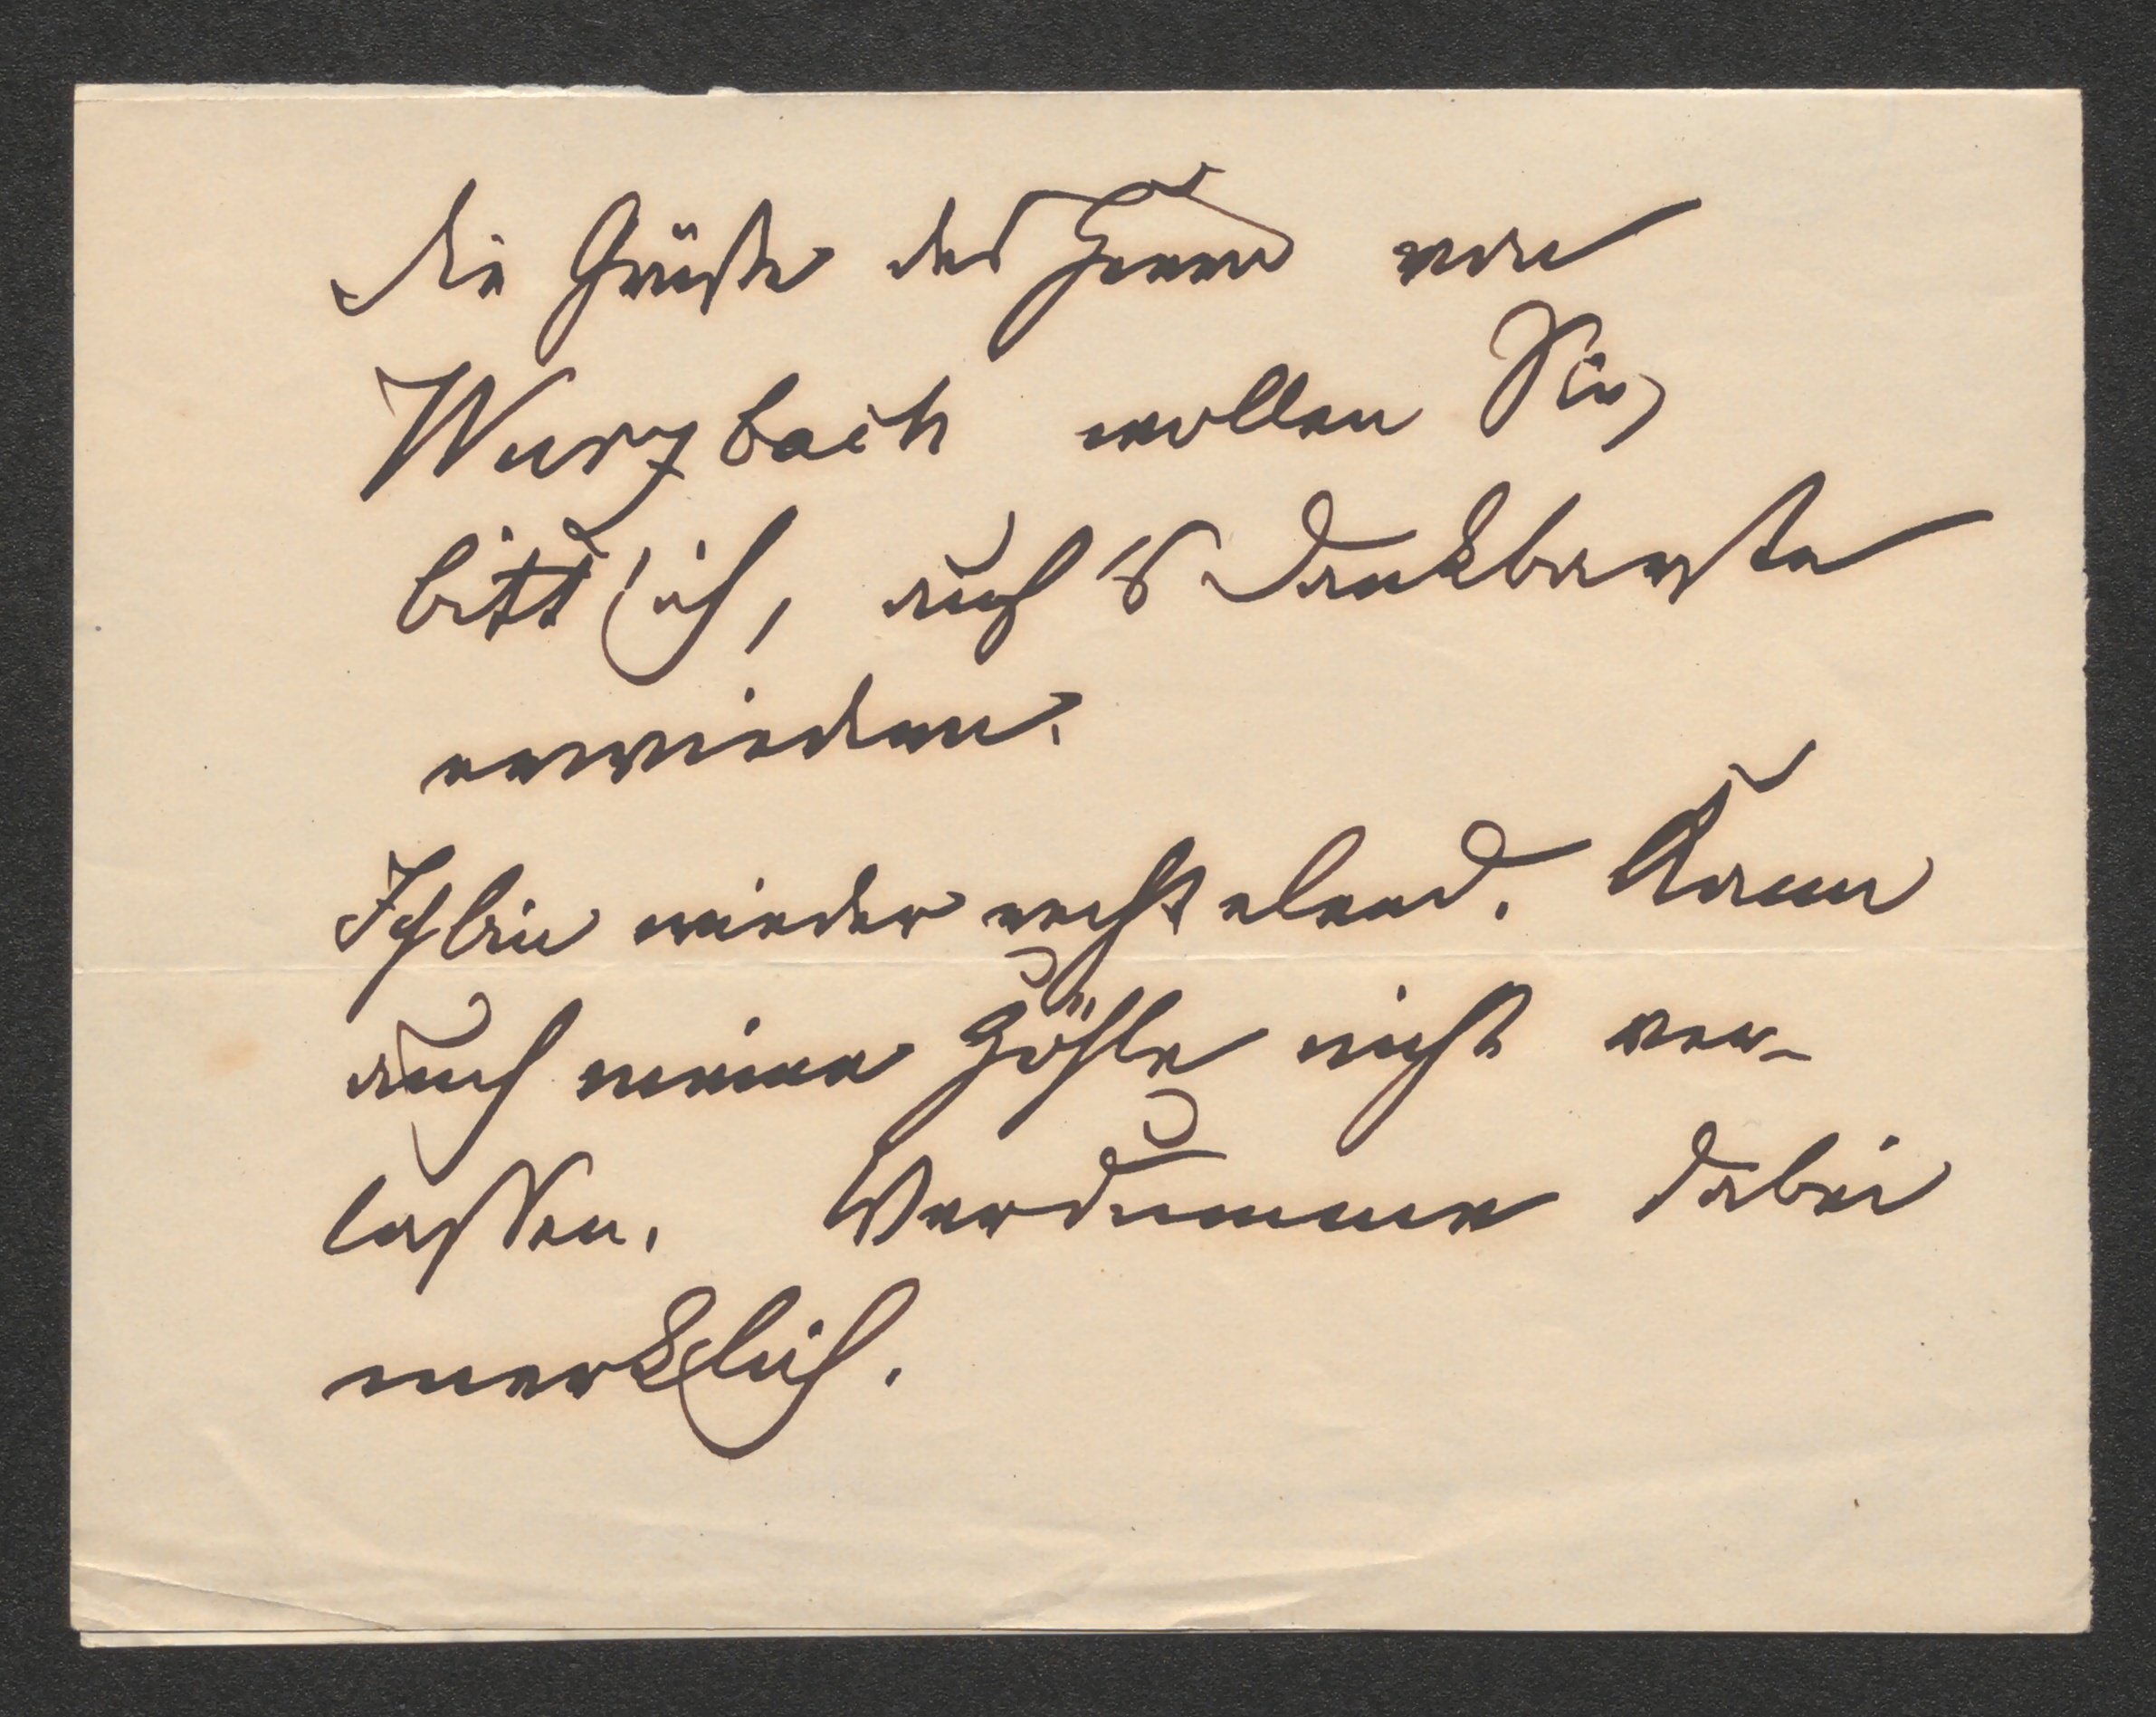 die Grüße des Herrn von
Wurzbach wollen Sie,
bitt' ich, auf's Dankbarste
erwiedern.
Ich bin wieder recht elend. Kann
auch meine Höhle nicht ver-
lassen. Verdumme dabei
merklich.